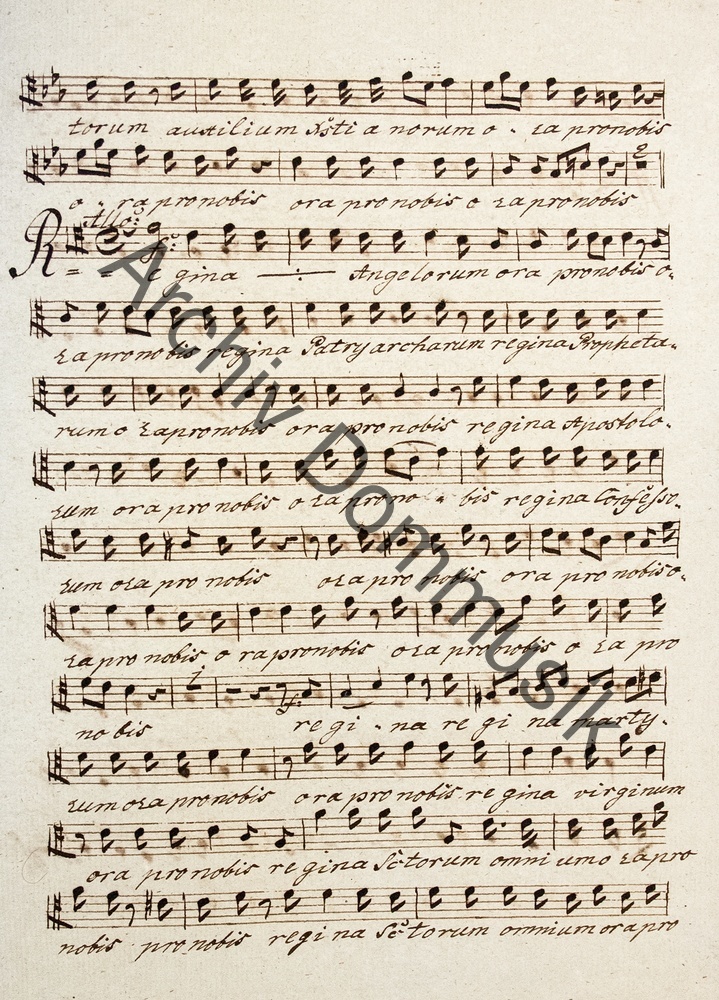 torum auxilium Xsti a norum o - ra pro nobis
2
o - ra pro nobis ora pro nobis o ra pro nobis
Allo:
R = - e gina —÷— Angelorum ora pro nobis o-
ra pro no bis regina Patry archarum regina Propheta-
rum o ra pro nobis ora pro nobis regina Apostolo-
rum ora pro nobis o ra pro no - bis regina Confesso-
rum ora pro nobis ora pro nobis ora pro nobis o-
ra pro nobis o ra pro nobis ora pro nobis o ra pro
1
f:
no bis re gi - na re gi na marty-
rum ora pro nobis ora pro nobis re gina virginum
ora pro nobis re gina Sctorum omni um o ra pro
nobis pro nobis regi na Sctorum omnium ora pro
Archiv Dommusik